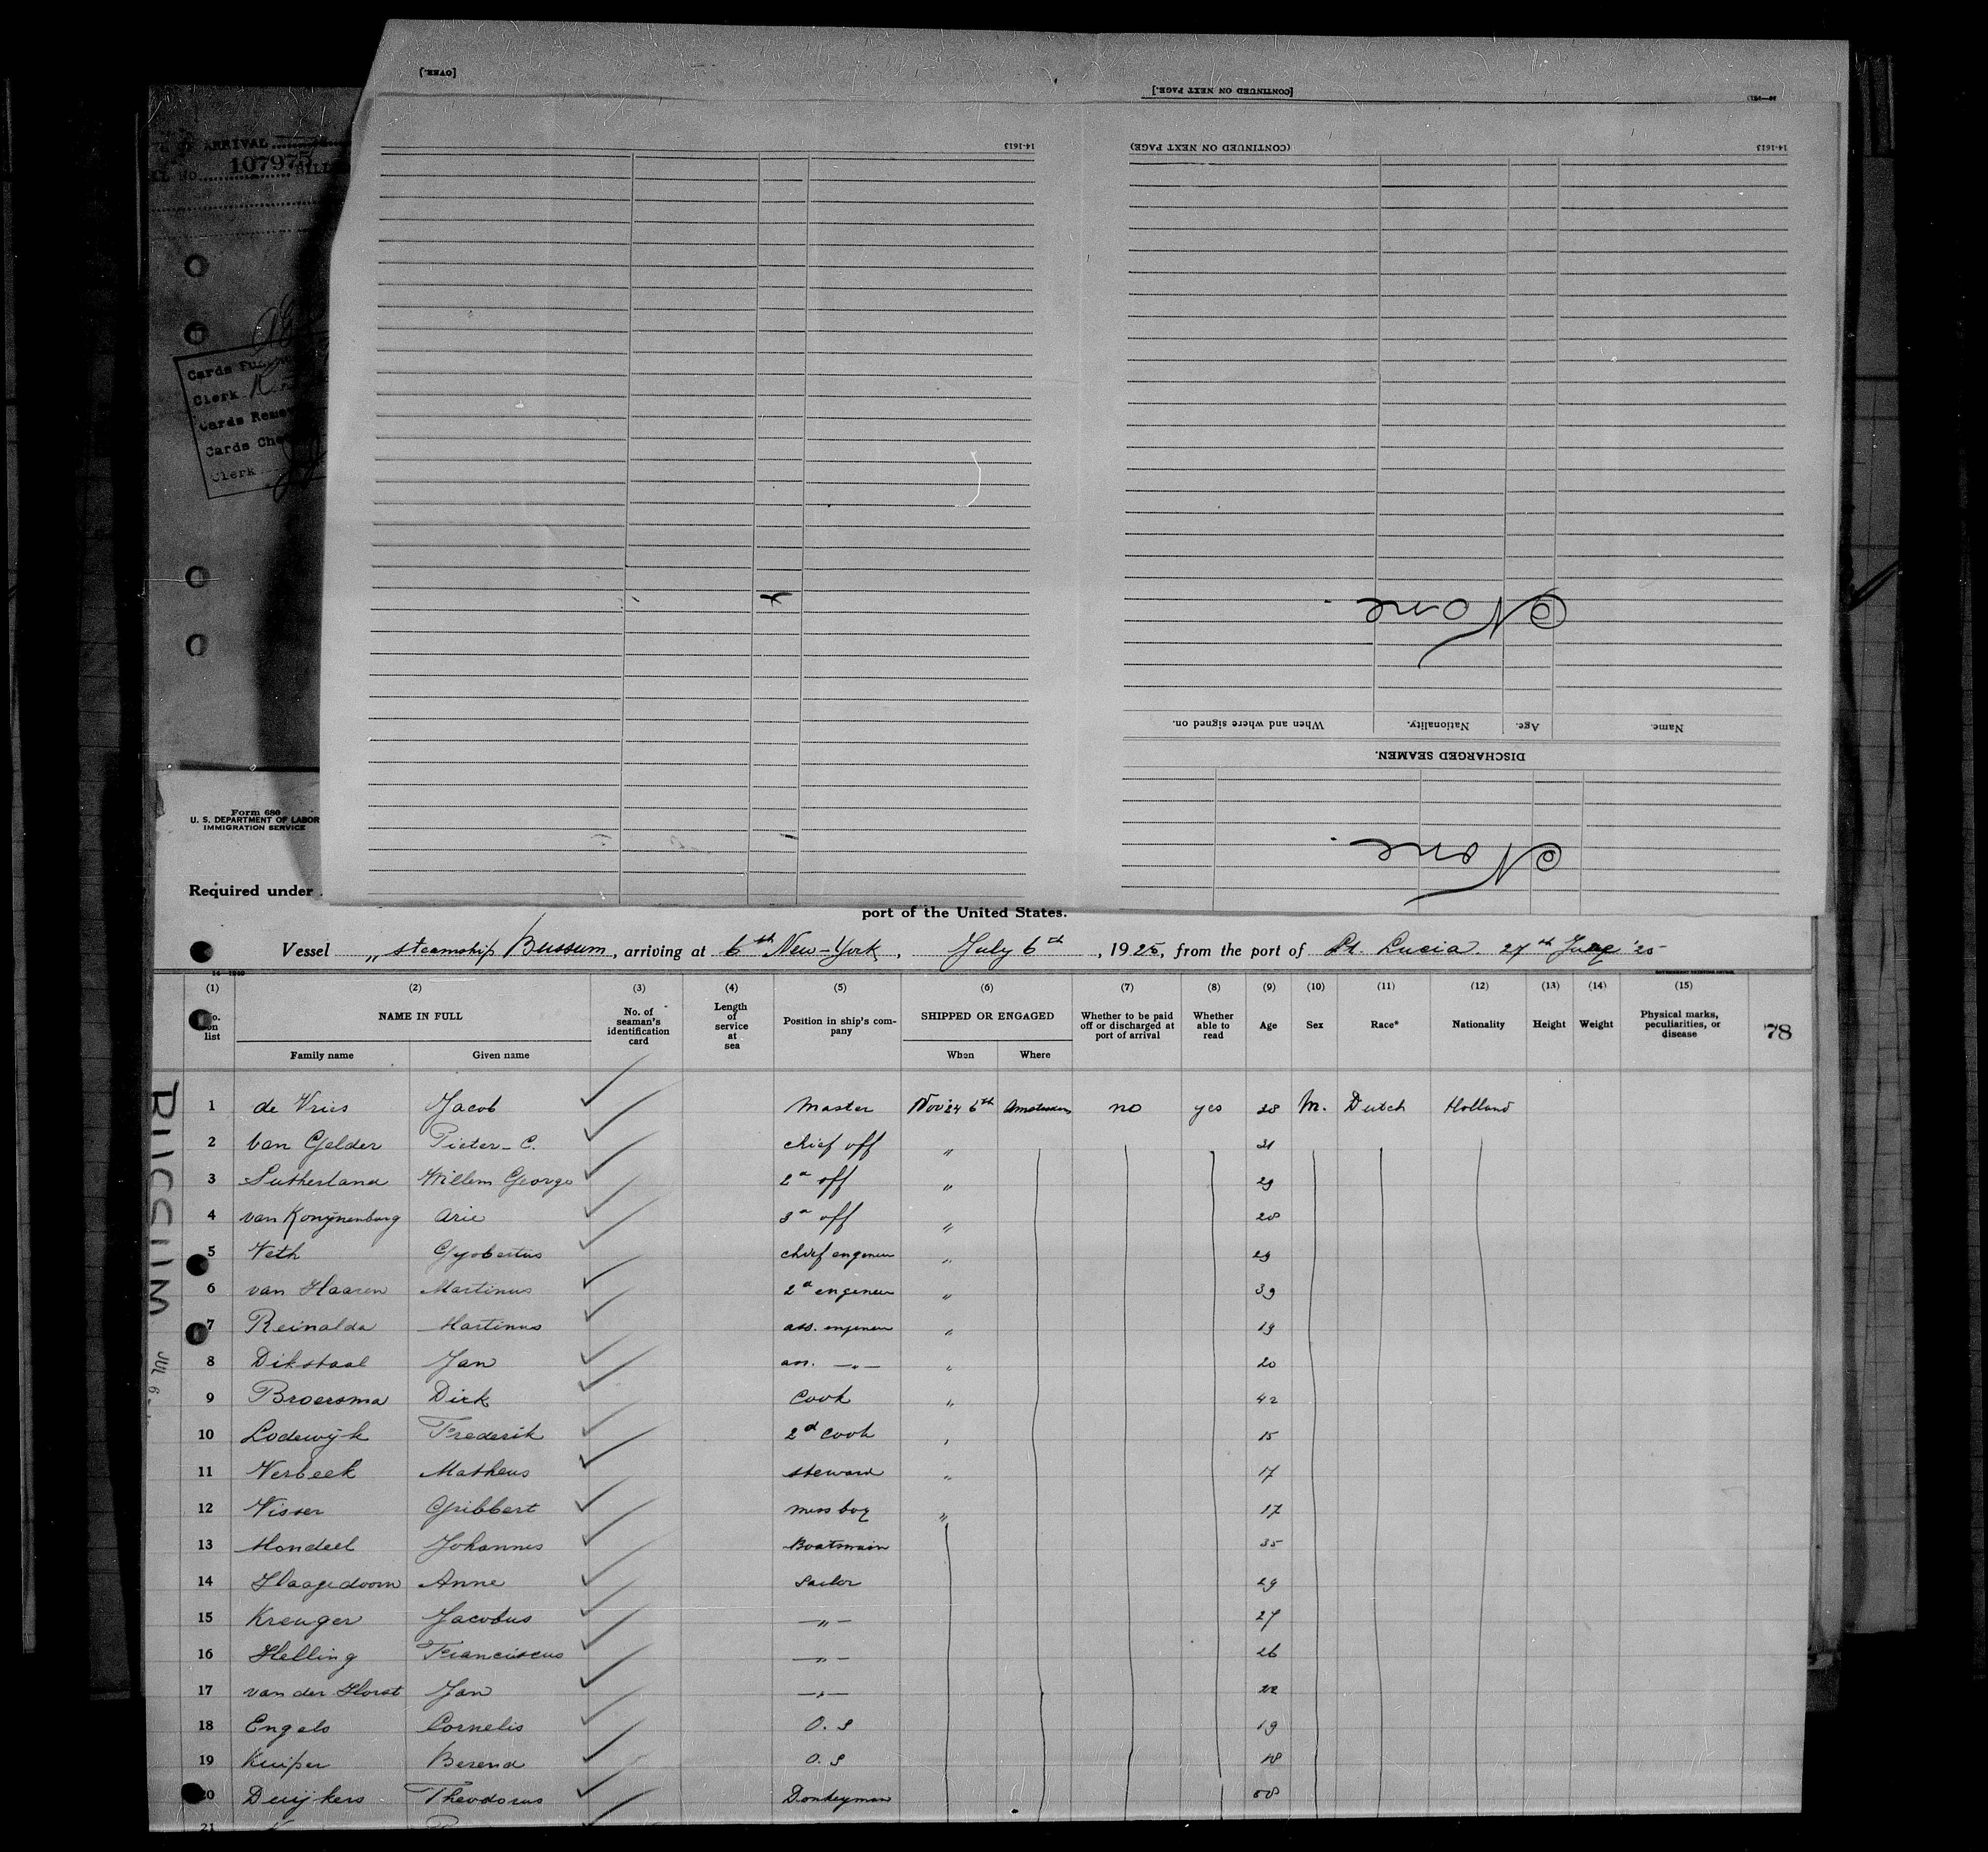 [OVER.]
[CONTINUED ON NEXT PAGE.]
14-1613
(CONTINUED ON NEXT PAGE)
14-1613
ARRIVAL
107975
Cards
Clerk
Cards
Cards
Clerk
None.
When and where signed on. Nationality. Age. Name.
DISCHARGED SEAMEN.
None.
Form 680
U. S. DEPARTMENT OF LABOR
IMMIGRATION SERVICE
Required under
port of the United States.
Vessel „ steamship Bussum, arriving at 6th New-York, July 6th, 1925, from the port of St. Lucia. 27th '25
(1) (2) (3) (4) (5) (6) (7) (8) (9) (10) (11) (12) (13) (14) (15)
No. on list NAME IN FULL No. of seaman's identification card Length of service at sea Position in ship's company SHIPPED OR ENGAGED Whether to be paid off or discharged at port of arrival Whether able to read Age Sex Race* Nationality Height Weight Physical marks, peculiarities, or disease 78
Family name Given name When Where
1 de Vries Jacob Master Nov 24 6th Amsterdam no yes 38 M. Dutch Holland
2 van Gelder Pieter-C. chief off „ 31
3 Sutherland Willem George 2d off „ 29
4 van Konynenburg Arie 3d off „ 28
5 Veth Gysbertus chief engeneer „ 29
6 van Haaren Martinus 2d engeneer „ 39
7 Reinalda Martinus ass. engeneer „ 19
8 Dikstaal Jan ass. —„— „ 20
9 Broersma Dirk Cook „ 42
10 Lodewijk Frederik 2d Cook „ 15
11 Verbeek Matheus steward „ 17
12 Visser Gribbert mess boy „ 17
13 Mondeel Johannes Boatswain 35
14 Haagedoorn Anne Sailor 29
15 Kreuger Jacobus —„— 27
16 Helling Franciscus —„— 26
17 van der Horst Jan —„— 22
18 Engels Cornelis O. S 19
19 Kuiper Berend O. S 18
20 Duijkers Theodorus Donkeyman 58
21
BUSSUM
JUL 6